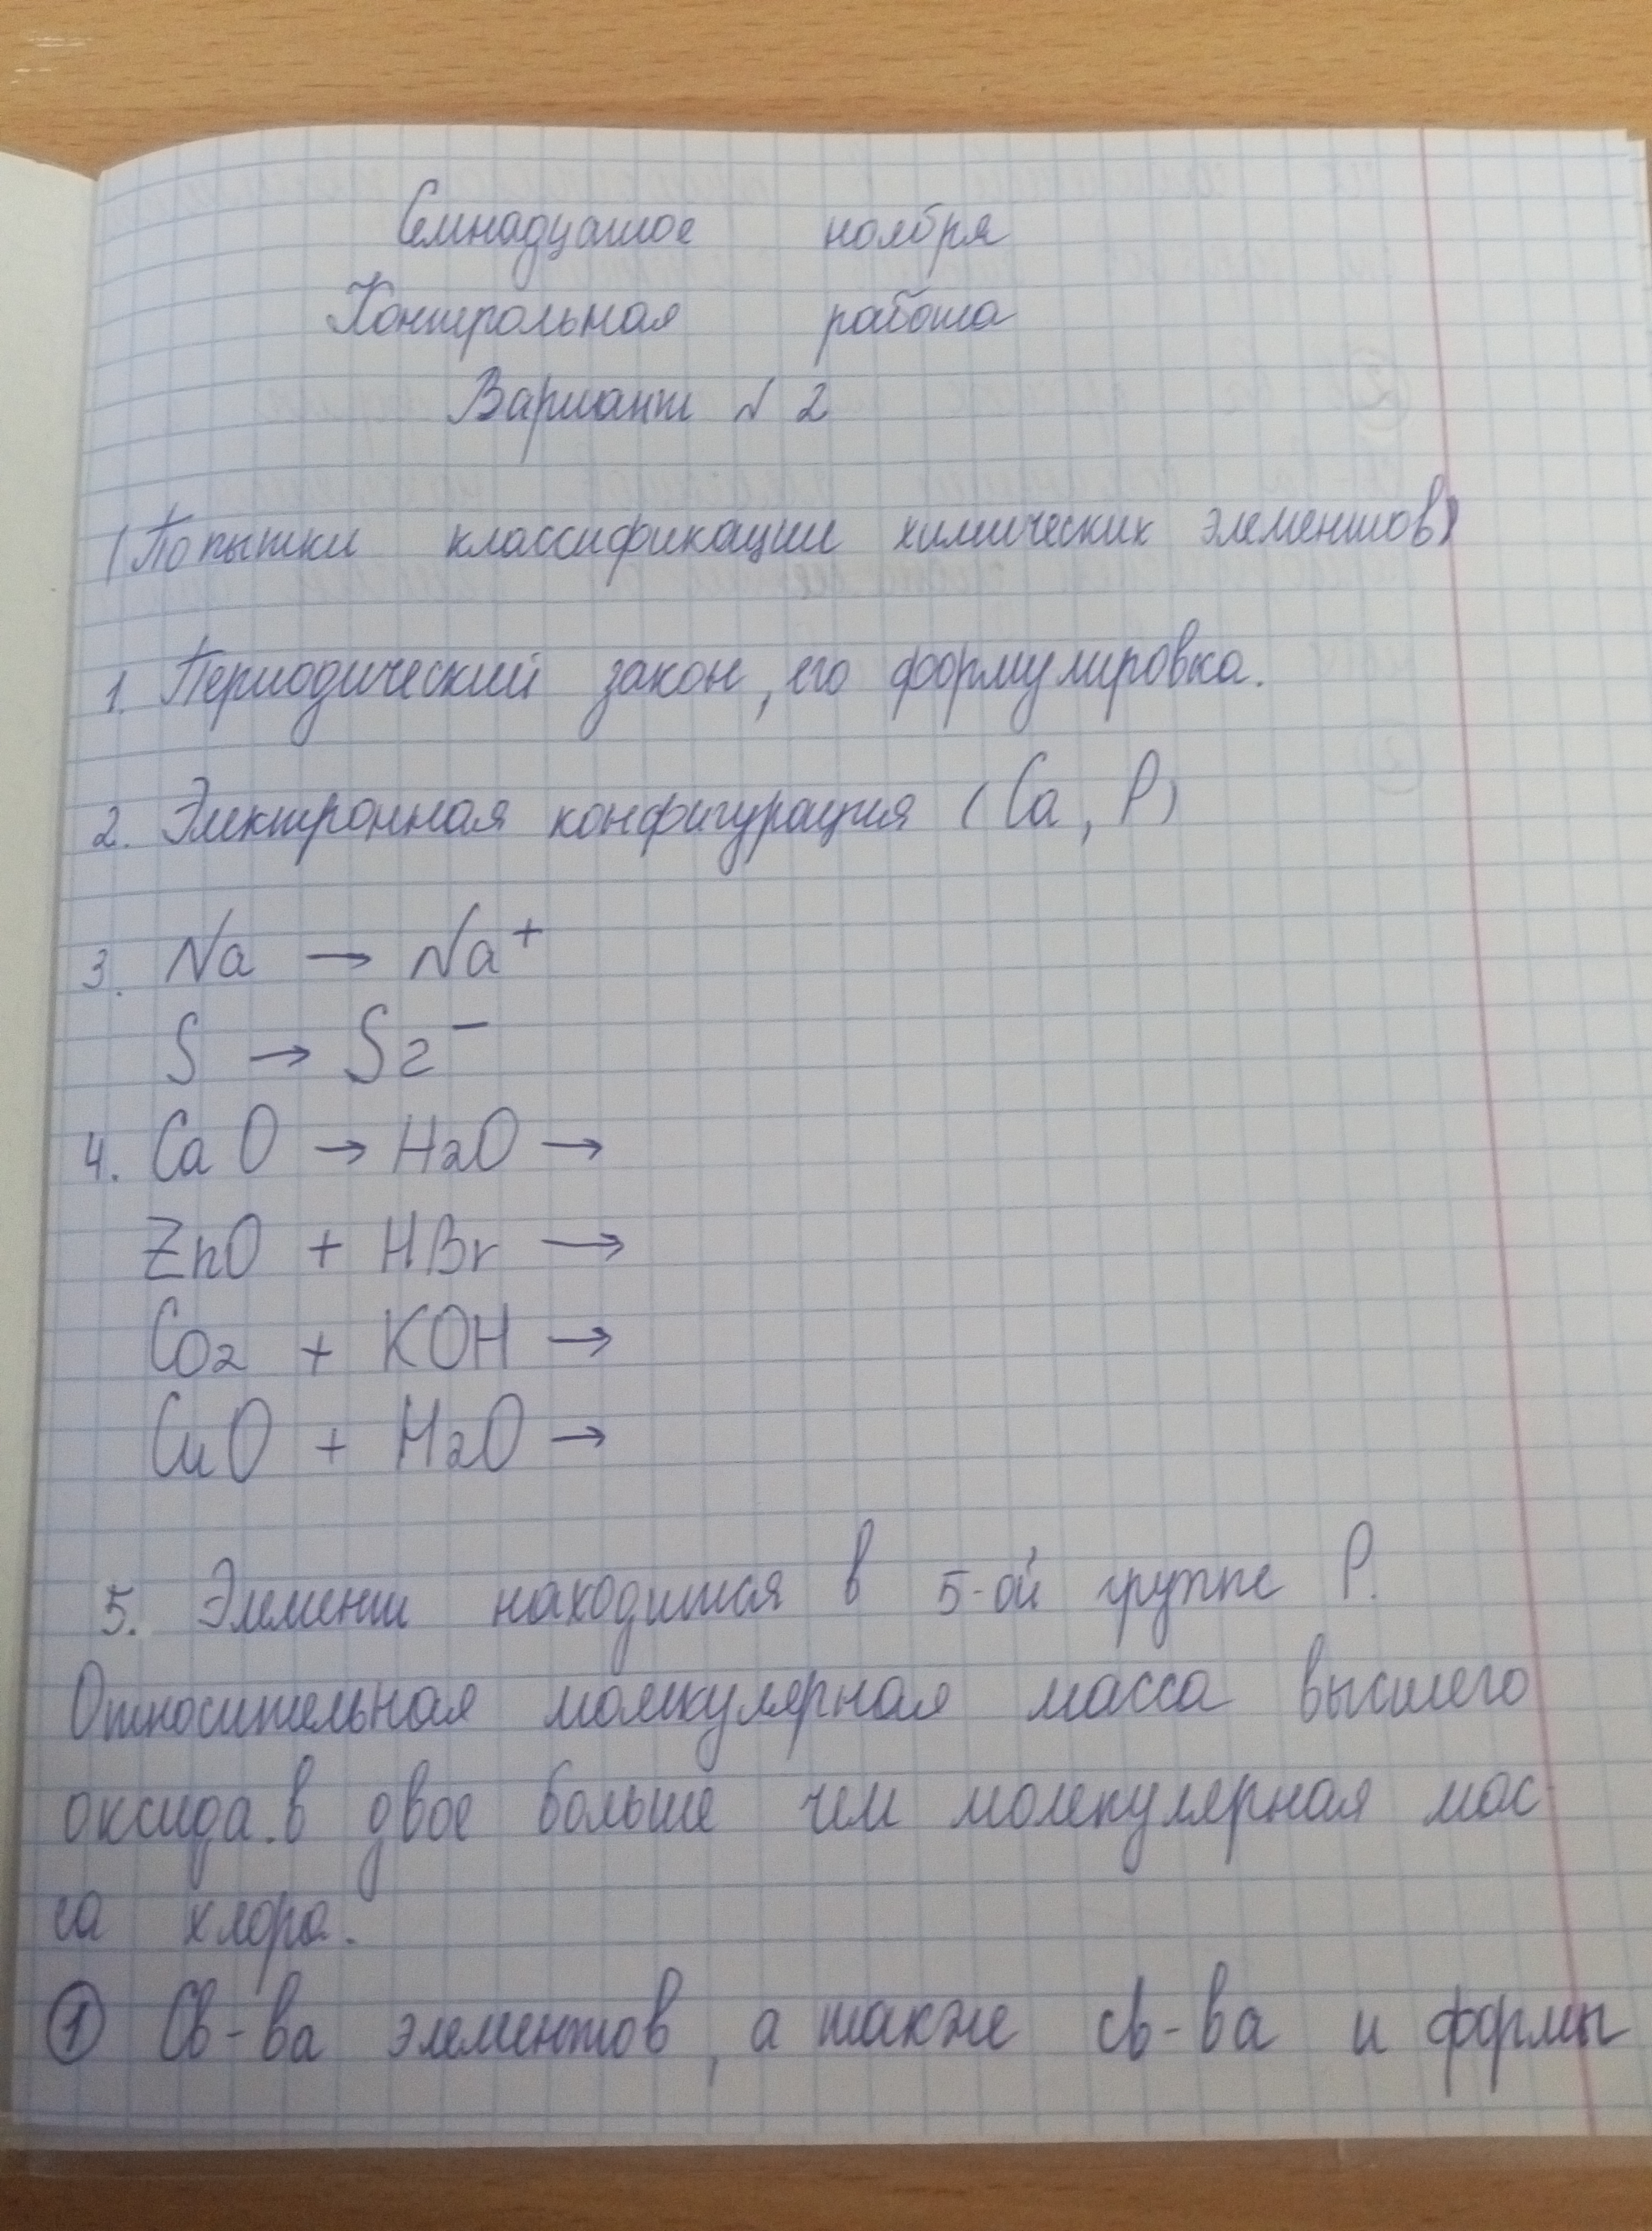 Семнадцатое ноября
Контрольная работа
Вариант № 2
(Попытки классификации химических элементов)
1. Периодический закон, его формулировка.
2. Электронная конфигурация (Ca, P)
3. Na → Na⁺
S → S2⁻
4. CaO → H2O →
ZnO + HBr →
CO2 + KOH →
CuO + H2O →
5. Элемент находится в 5-ой группе P.
Относительная молекулярная масса высшего
оксида.в двое больше чем молекулярная мас
са хлора.
① Св-ва элементов, а также св-ва и формы